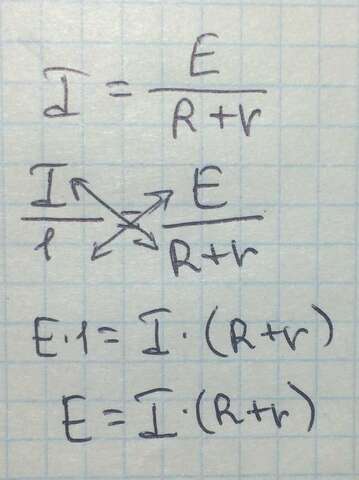 I = E / R+r
I / 1 = E / R+r
E·1 = I·(R+r)
E = I·(R+r)